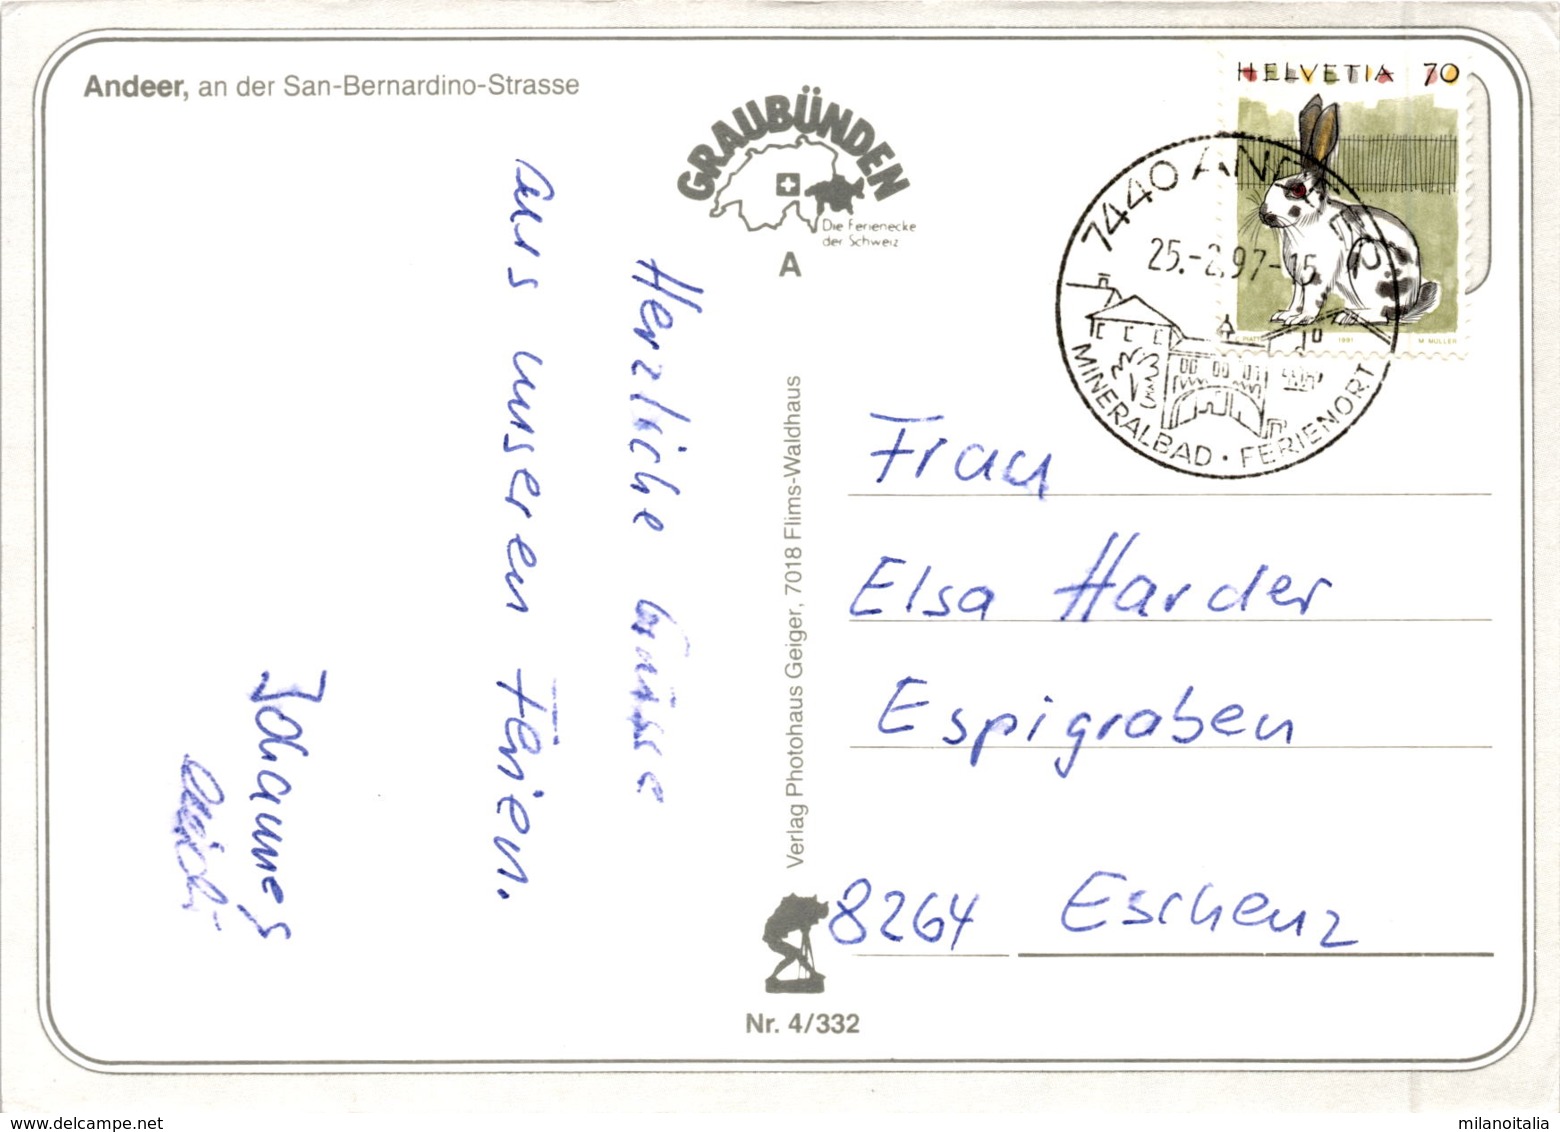 Andeer, an der San-Bernardino-Strasse
GRAUBÜNDEN
Die Ferienecke
der Schweiz
A
HELVETIA 70
1991
M. MÜLLER
7440 ANDEER
25.-2.97-15
MINERALBAD · FERIENORT
Herzliche Grüsse
aus unseren Ferien.
Johannes
Verlag Photohaus Geiger, 7018 Flims-Waldhaus
Frau
Elsa Harder
Espigraben
8264 Eschenz
Nr. 4/332
milanoitalia